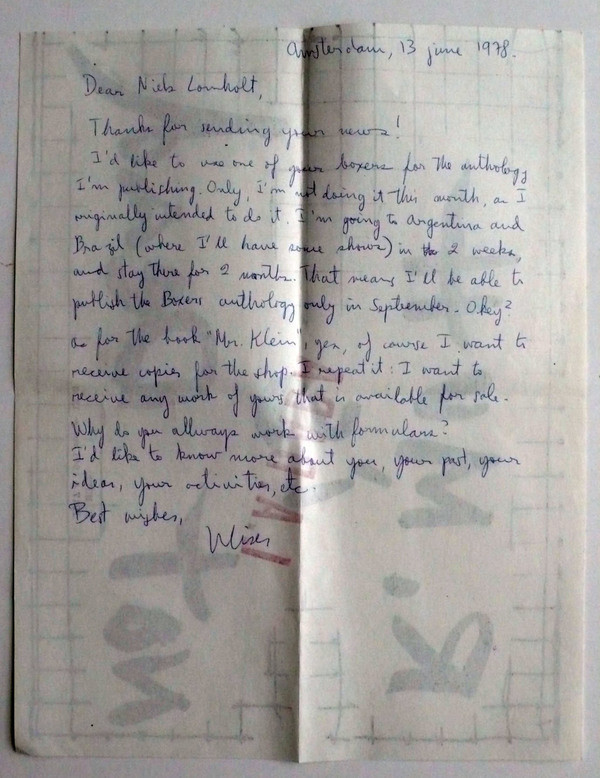 Amsterdam, 13 june 1978.
Dear Niels Lomholt,
Thanks for sending your news!
I'd like to use one of your boxers for the anthology
I'm publishing. Only, I'm not doing it this month, as I
originally intended to do it. I'm going to Argentina and
Brazil (where I'll have some shows) in 2 weeks,
and stay there for 2 months. That means I'll be able to
publish the Boxers anthology only in September. Okey?
as for the book "Mr. Klein", yes, of course I want to
receive copies for the shop. I repeat it: I want to
receive any work of yours that is available for sale.
Why do you allways work with formulars?
I'd like to know more about you, your past, your
ideas, your activities, etc.
Best wishes,
Ulises